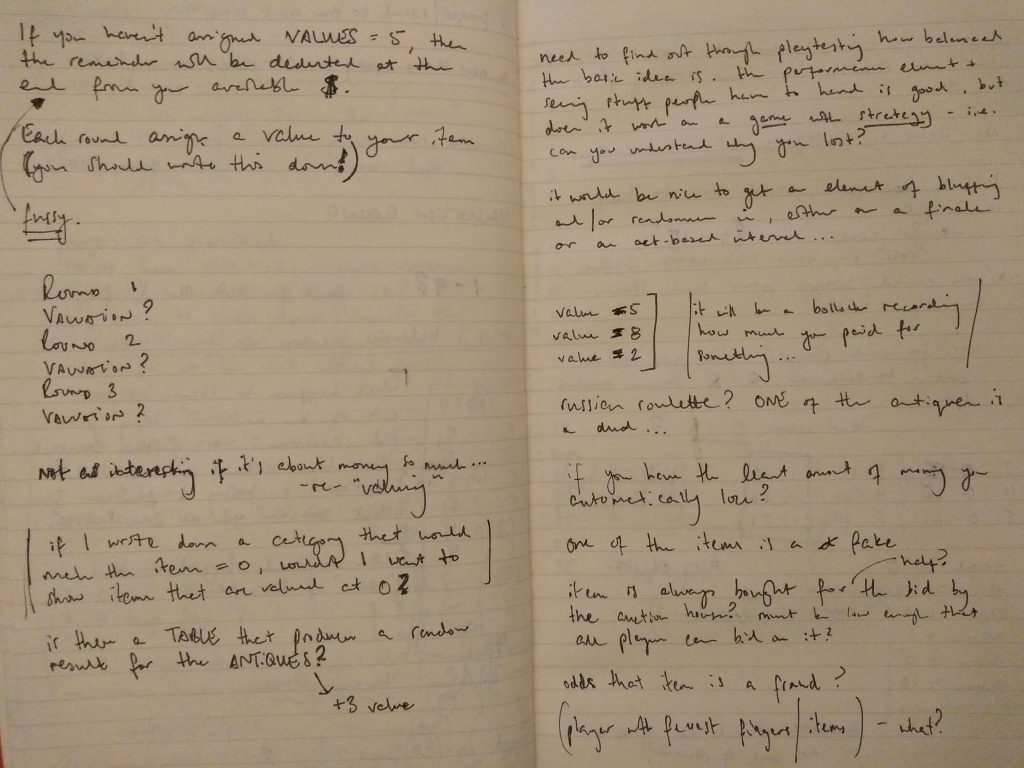 If you haven't assigned VALUES = 5, then
the remainder will be deducted at the
end from your available $.
Each round assign a value to your item
(you should write this down!)
fussy.
ROUND 1
VALUATION?
ROUND 2
VALUATION?
ROUND 3
VALUATION?
NOT as interesting if it's about money so much...
-re- "valuing"
if I write down a category that would
mean the item = 0, would I want to
show items that are valued at 0?
is there a TABLE that produces a random
result for the ANTIQUES?
+3 value
need to find out through playtesting how balanced
the basic idea is. the performance element +
seeing stuff people have to hand is good, but
does it work as a game with strategy - i.e.
can you understand why you lost?
it would be nice to get an element of bluffing
and/or randomness in, either as a finale
or an act-based interval...
value = 5
value = 8
value = 2
it will be a bollocks recording
how much you paid for
something...
russian roulette? ONE of the antiques is
a dud...
if you have the least amount of money you
automatically lose?
one of the items is a fake
half?
item is always bought for the bid by
the auction house? must be low enough that
all players can bid on it?
odds that item is a fraud?
(player with fewest fingers/items) - what?